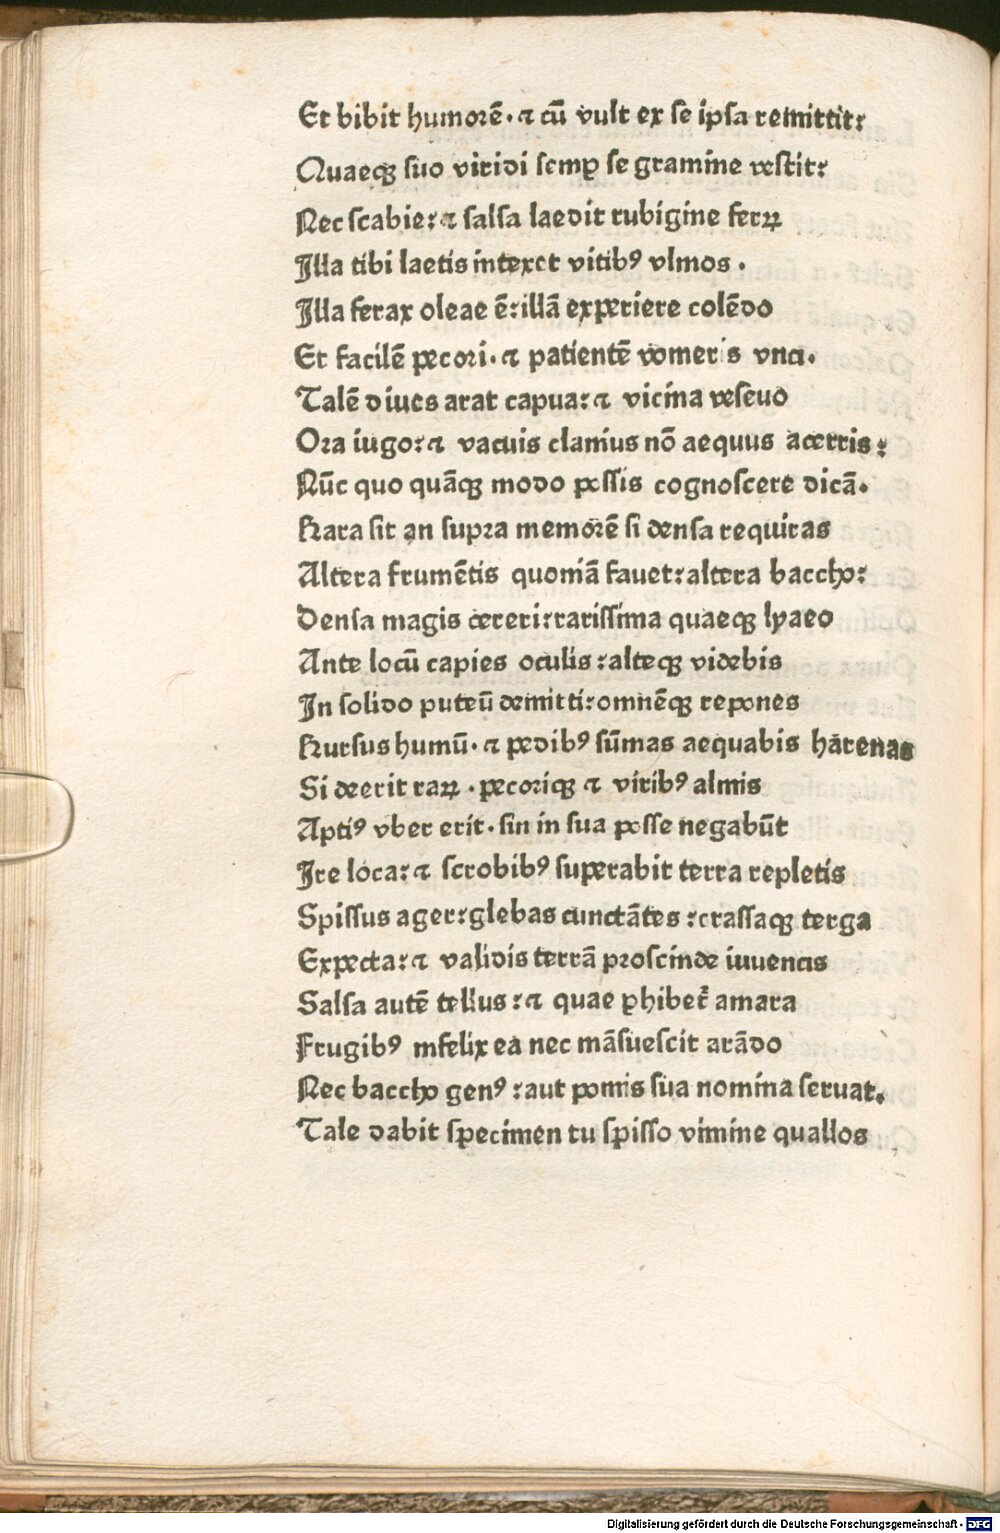 Et bibit humorē· ⁊ cū vult ex se ipsa remittit:
Quaeqꝫ suo viridi semꝑ se gramine vestit:
Nec scabie: ⁊ salsa laedit rubigine ferꝝ
Illa tibi laetis intexet vitibꝰ vlmos ·
Illa ferax oleae ē: illā experiere colēdo
Et facilē pecori· ⁊ patientē vomeris vnci·
Talē diues arat capua: ⁊ vicina veseuo
Ora iugo: ⁊ vacuis clanius nō aequus acerris:
Nūc quo quāqꝫ modo possis cognoscere dicā·
Rara sit an supra memorē si densa requiras
Altera frumētis quoniā fauet: altera baccho:
Densa magis cereri: rarissima quaeqꝫ lyaeo
Ante locū capies oculis: alteqꝫ videbis
In solido puteū demitti: omnēqꝫ repones
Rursus humū· ⁊ pedibꝰ sūmas aequabis harenas
Si deerit raꝝ · pecoriqꝫ ⁊ vitibꝰ almis
Aptiꝰ vber erit· sin in sua posse negabūt
Ire loca: ⁊ scrobibꝰ superabit terra repletis
Spissus ager: glebas cunctātes: crassaqꝫ terga
Expecta: ⁊ validis terrā proscinde iuuencis
Salsa autē tellus: ⁊ quae ꝑhibet̄ amara
Frugibꝰ infelix ea nec māsuescit arādo
Nec baccho genꝰ: aut pomis sua nomina seruat.
Tale dabit specimen tu spisso vimine quallos
Digitalisierung gefördert durch die Deutsche Forschungsgemeinschaft - DFG